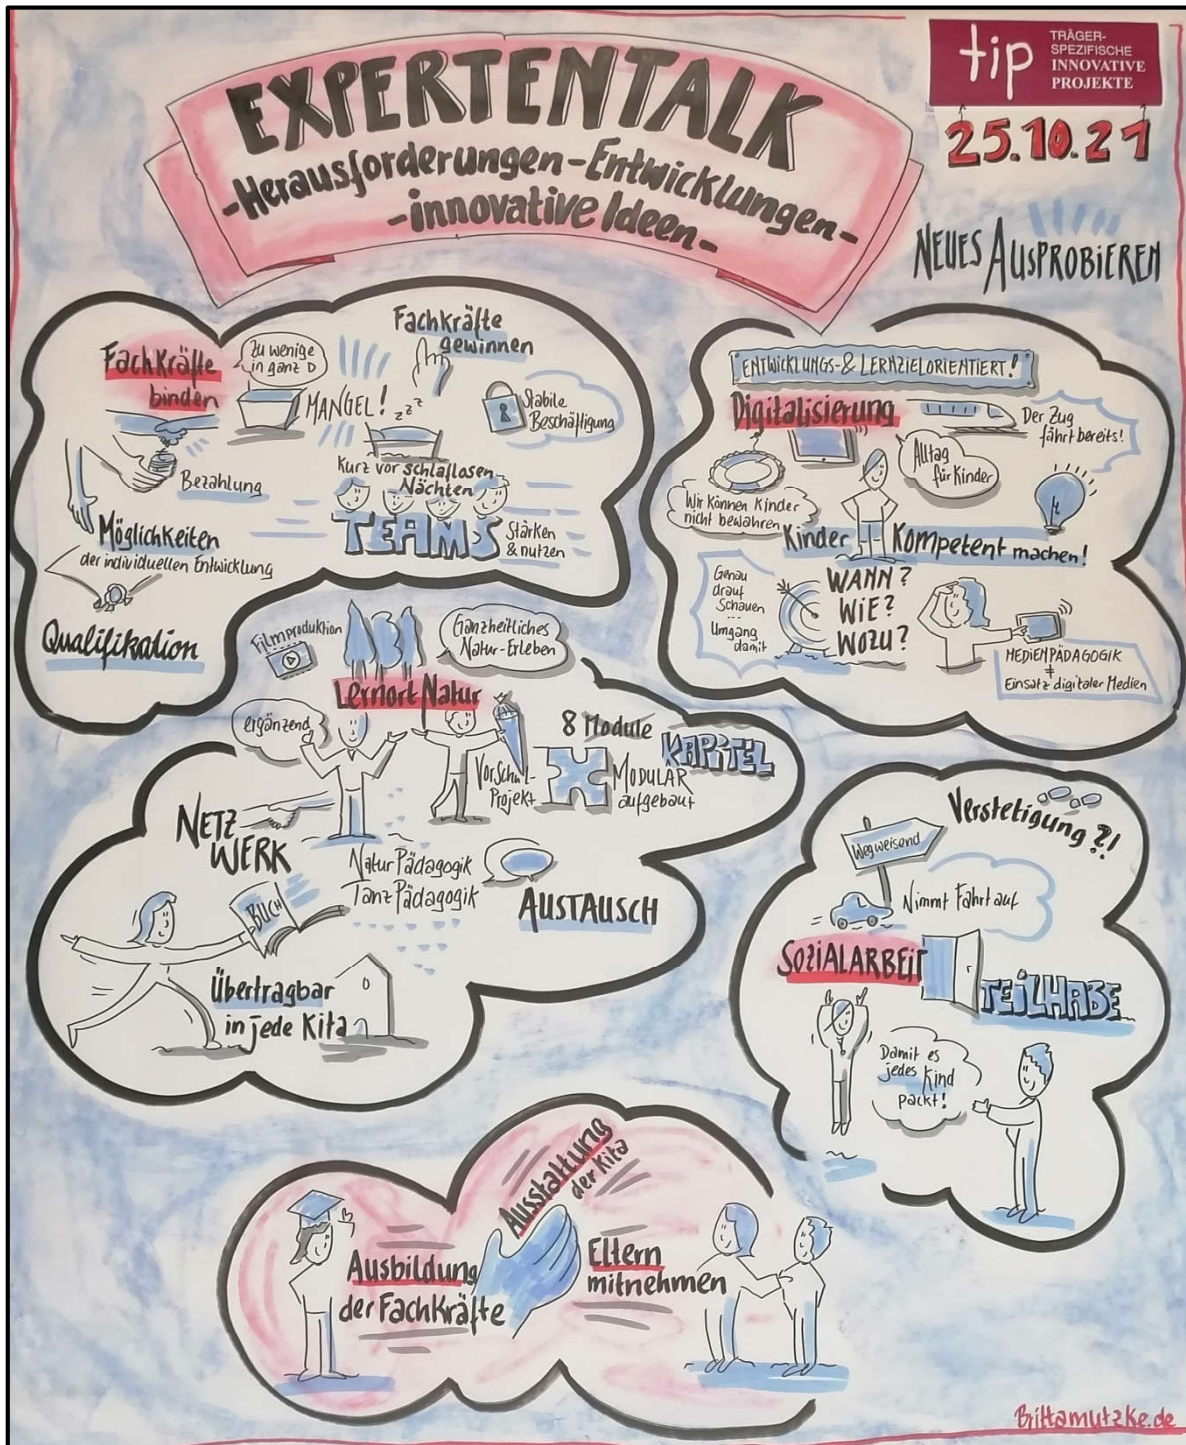 EXPERTENTALK
-Herausforderungen-Entwicklungen-
-innovative Ideen-
tip
TRÄGER-
SPEZIFISCHE
INNOVATIVE
PROJEKTE
25.10.21
NEUES AUSPROBIEREN
Fachkräfte
binden
Zu wenige
in ganz D
MANGEL!
Fachkräfte
gewinnen
zzz
Stabile
Beschäftigung
Kurz vor schlaflosen
Nächten
Bezahlung
TEAMS
Stärken
& nutzen
Möglichkeiten
der individuellen Entwicklung
Qualifikation
ENTWICKLUNGS- & LERNZIELORIENTIERT!
Digitalisierung
Der Zug
fährt bereits!
Alltag
für Kinder
Wir können Kinder
nicht bewahren
Kinder Kompetent machen!
Genau
drauf
Schauen
...
Umgang
damit
WANN?
WIE?
WOZU?
MEDIENPÄDAGOGIK
≠
Einsatz digitaler Medien
Filmproduktion
Ganzheitliches
Natur-Erleben
Lernort Natur
ergänzend
Vorschul-
Projekt
8 Module
KAPITEL
MODULAR
aufgebaut
NETZ
WERK
Natur Pädagogik
Tanz Pädagogik
AUSTAUSCH
BUCH
Übertragbar
in jede Kita
Verstetigung?!
Wegweisend
Nimmt Fahrt auf
SOZIALARBEIT
TEILHABE
Damit es
jedes Kind
packt!
Ausstattung
der Kita
Ausbildung
der Fachkräfte
Eltern
mitnehmen
Brittamutzke.de